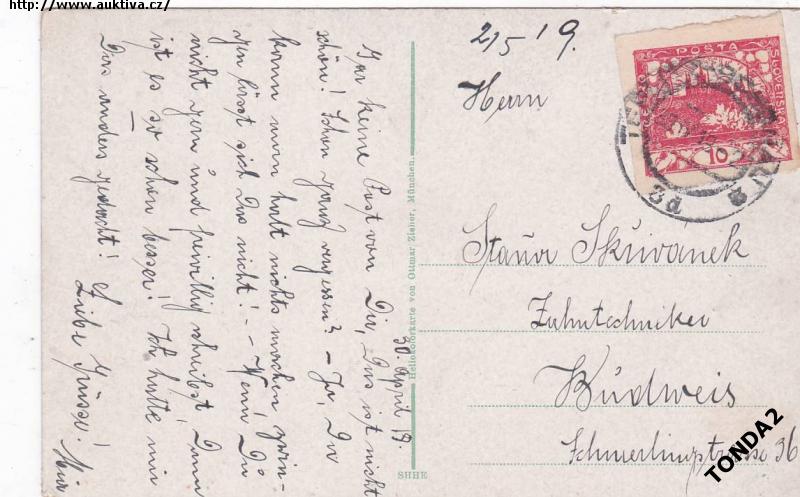 http://www.auktiva.cz/
30. April 19.
Gar keine Post von Dir, Das ist nicht
schön! Schon ganz vergessen? – Ja, Da
kann man halt nichts machen zwin-
gen lässt sich Das nicht! – Wenn Du
nicht gern und freiwillig schreibst, Dann
ist es so schon besser! Ich hatte mir
Das anders gedacht!
Liebe Grüsse!
Heliokolorkarte von Ottmar Zieher, München.
SHHE
2/5 19.
Herrn
POSTA
SLOVENSKÁ
10
Skřivánek
Zahntechniker
Budweis
Schmerlingstrasse 36
TONDA2